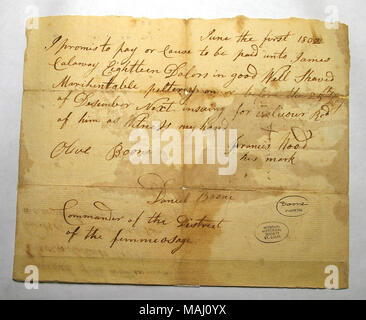 June the first 1802
I promis to pay or Cause to be paid unto James
Calaway Eighteen Dolors in good Well Shaved
Marchentable pelterys on or before the 25th
of Desember Next insuing for Red
of him as Witness my hand
Olive Boone Francis Hood
his mark
Daniel Boone
Commander of the District
of the femmeosage
Boone
alamy
Image ID: MAJ0YX
www.alamy.com